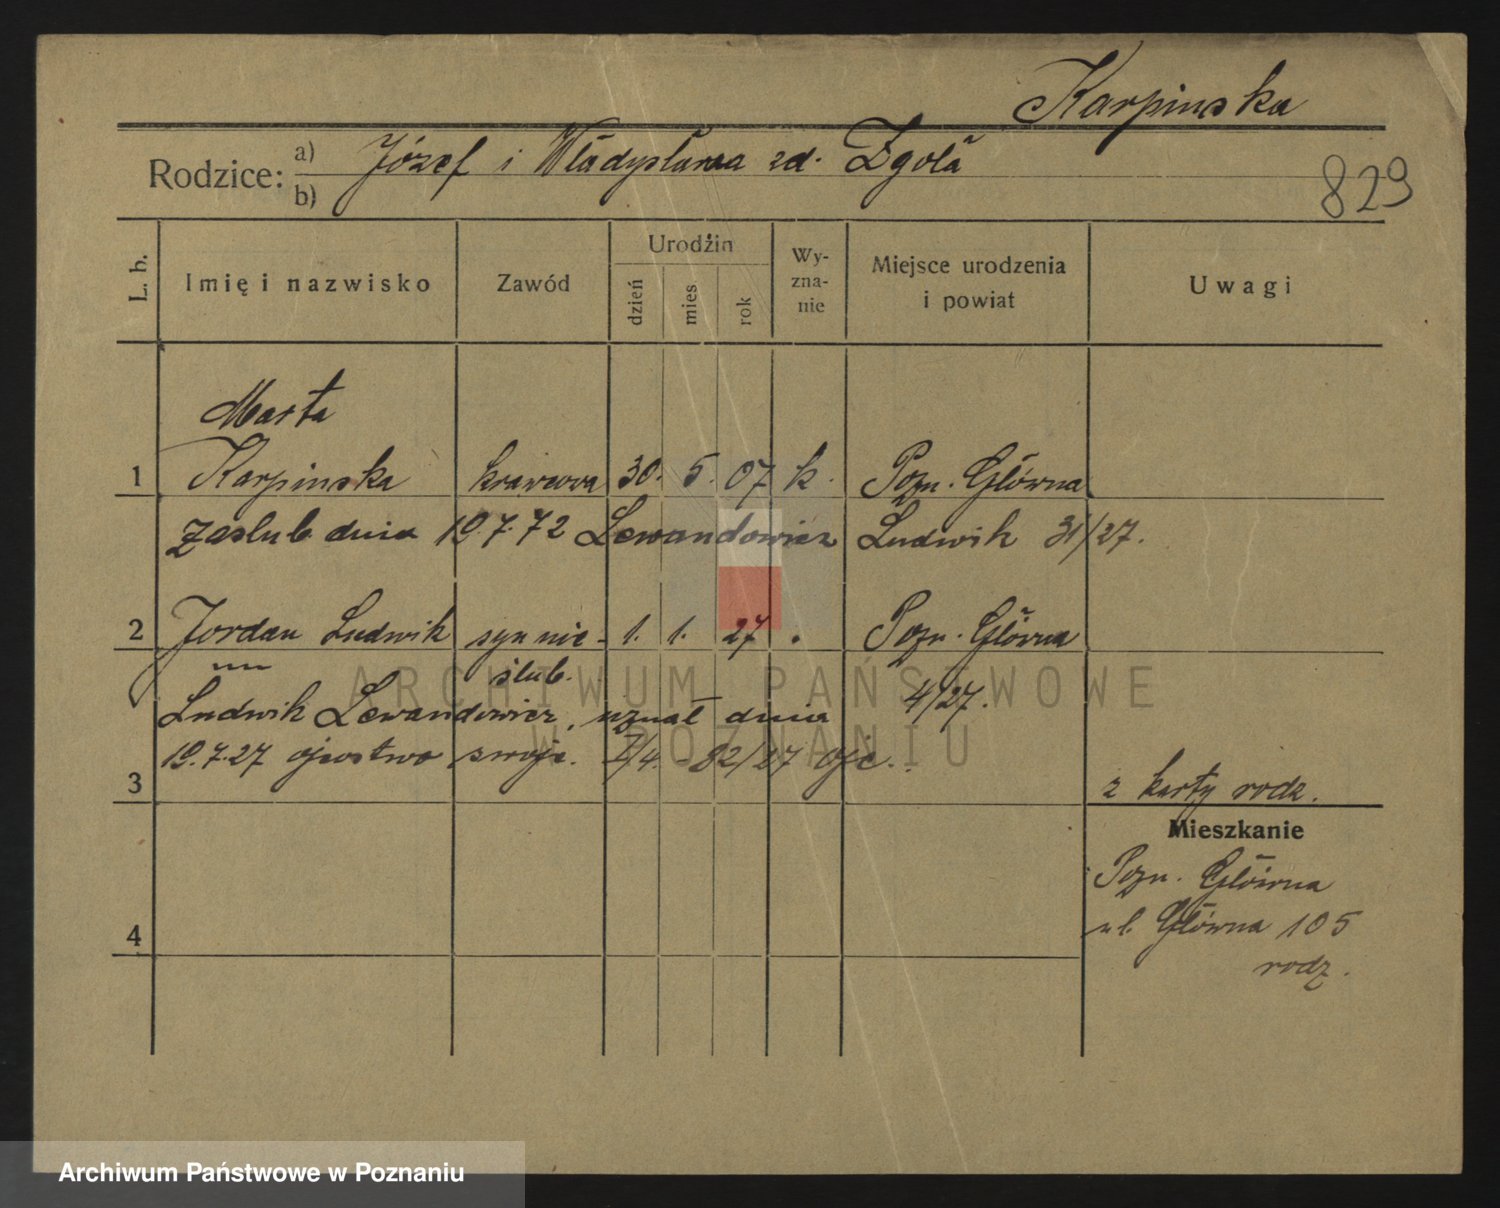 Karpinska
Rodzice: a) Józef i Władysława zd. Zgoła
b)
829
L. b. Imię i nazwisko Zawód Urodżin dzień mies rok Wyznanie Miejsce urodzenia i powiat Uwagi
Marta
1 Karpinska krawcowa 30. 5. 07 k. Pozn. Główna
zaslub dnia 19.7.72 Lewandowicz Ludwik 31/27.
2 Jordan Ludwik syn nie- 1. 1. 27 . Pozn. Główna
ślub. 4/27.
Ludwik Lewandowicz, uznał dnia
19.7.27 ojcostwo swoje. 82/27 ojc.
3 z karty rodz.
Mieszkanie
Pozn. Główna
4 ul. Główna 105
rodz.
ARCHIWUM PAŃSTWOWE
W POZNANIU
Archiwum Państwowe w Poznaniu